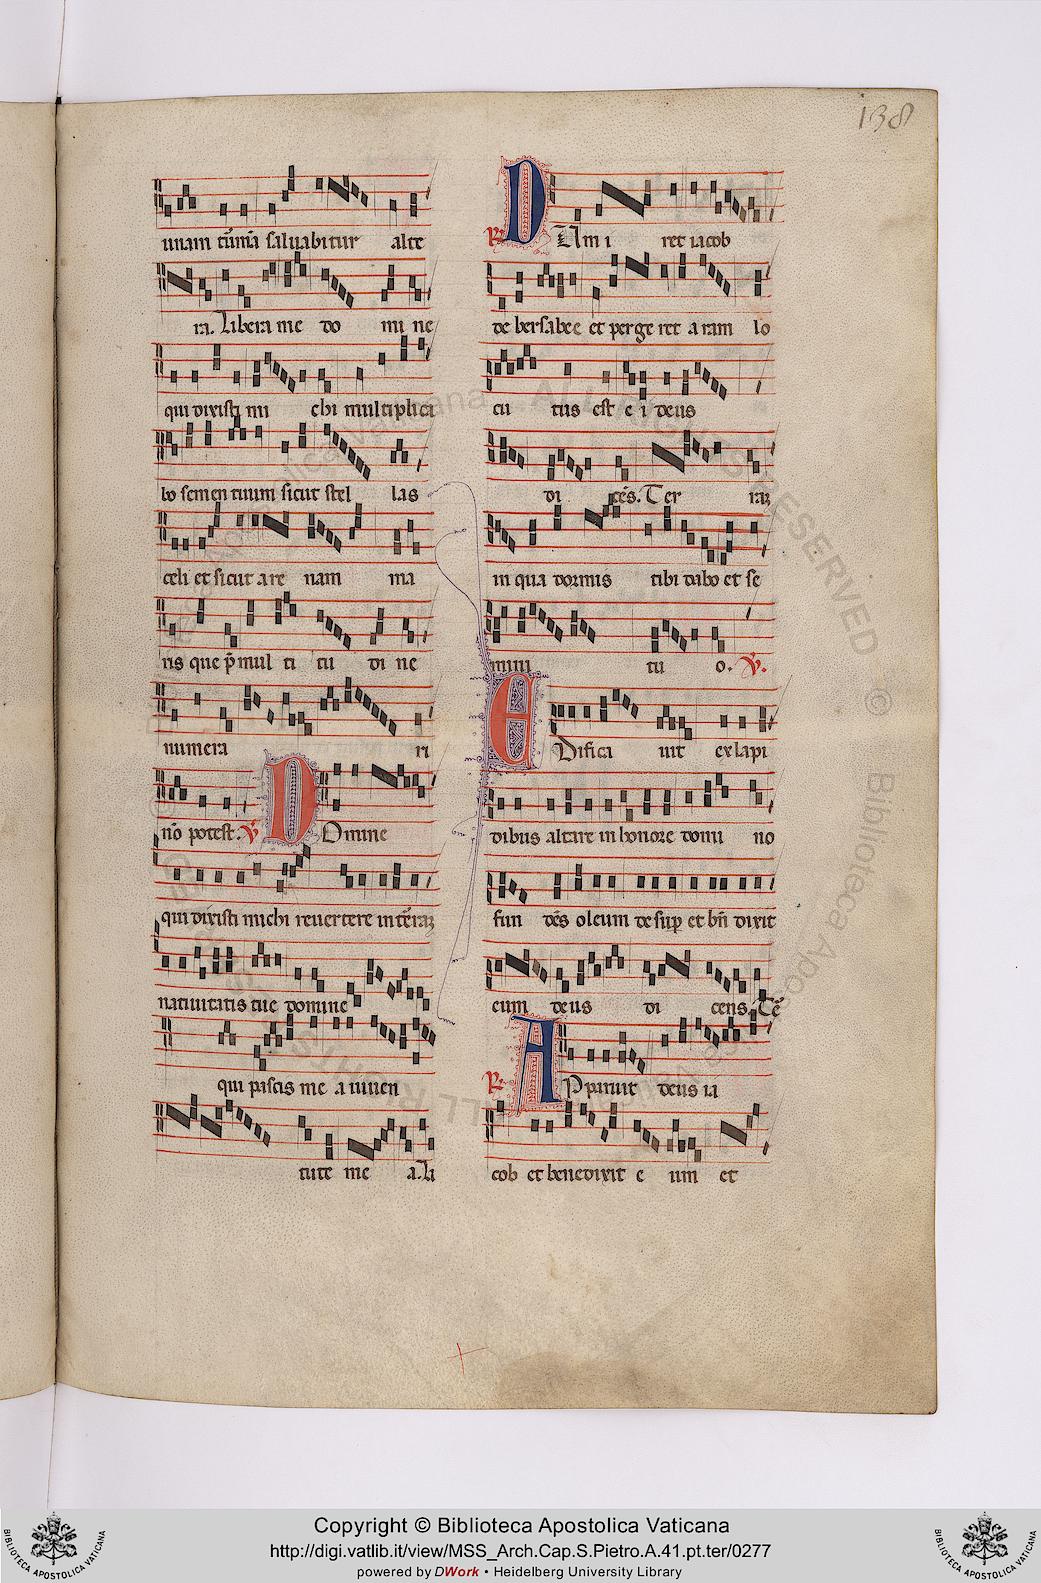 138
unam tūmā saluabitur alte
ra. Libera me do mi ne
qui dixisti mi chi multiplica
bo semen tuum sicut stel las
celi et sicut are nam ma
ris que p̄ mul ti tu di ne
numera ri
nō potest. V Domine
qui dixisti michi reuertere in tēraz
natiuitatis tue domine
qui pascis me a iuuen
tute me a. Li
R Dum i ret iacob
de bersabee et perge ret aram lo
cu tus est e i deus
di cēs. Ter raz
in qua dormis tibi dabo et se
mini tu o. V.
Edifica uit ex lapi
dibus altare in honore domi no
fun dēs oleum desup et bn̄ dixit
eum deus di cens. Tē
R Apparuit deus ia
cob et benedixit e um et
Copyright © Biblioteca Apostolica Vaticana
http://digi.vatlib.it/view/MSS_Arch.Cap.S.Pietro.A.41.pt.ter/0277
powered by DWork • Heidelberg University Library